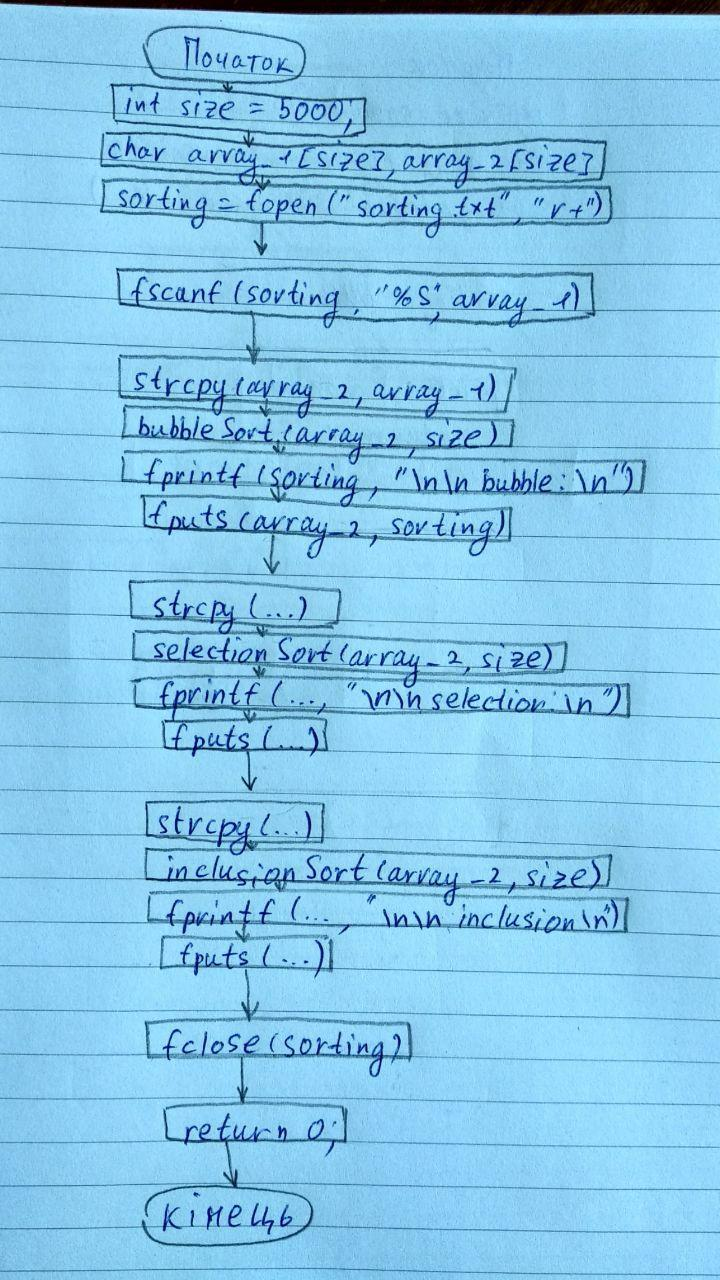 Початок
int size = 5000;
char array_1[size], array_2[size]
sorting = fopen("sorting.txt", "r+")
fscanf(sorting, "%s", array_1)
strcpy(array_2, array_1)
bubbleSort(array_2, size)
fprintf(sorting, "\n\n bubble: \n")
fputs(array_2, sorting)
strcpy(...)
selectionSort(array_2, size)
fprintf(..., "\n\n selection: \n")
fputs(...)
strcpy(...)
inclusionSort(array_2, size)
fprintf(..., "\n\n inclusion\n")
fputs(...)
fclose(sorting)
return 0;
Кінець